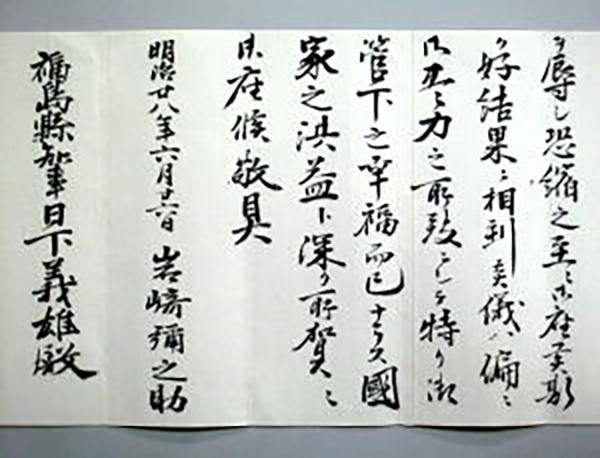 ヲ辱シ恐縮之至ニ御座候斯
ク好結果ニ相到候儀ハ偏ニ
御尽力之所致ニシテ特リ御
管下之幸福而已ナラス國
家之洪益ト深ク所賀ニ
御座候敬具
明治廿八年六月 日 岩崎彌之助
福島縣知事日下義雄殿